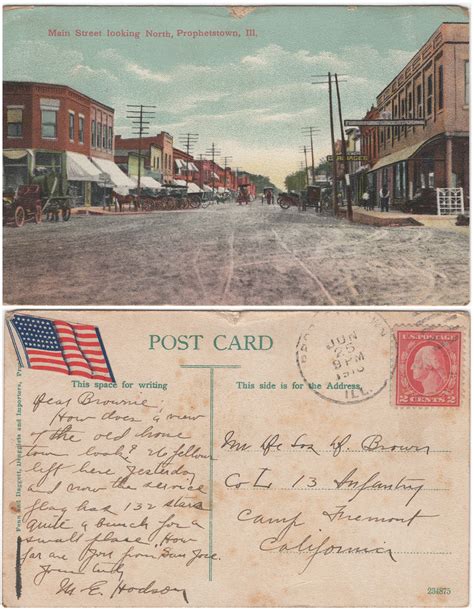 Main Street looking North, Prophetstown, Ill.
POST CARD
This space for writing
This side is for the Address.
JUN
25
3 PM
ILL.
2 CENTS 2
Dear Brownie,
How does a view
of the old home
town look? 26 fellows
left here yesterday
and now the service
flag has 132 stars
quite a bunch for a
small place. How
far are you from San Jose.
Yours truly
M. E. Hodson
Brown
Co L 13 Infantry
Camp Fremont
California
234875